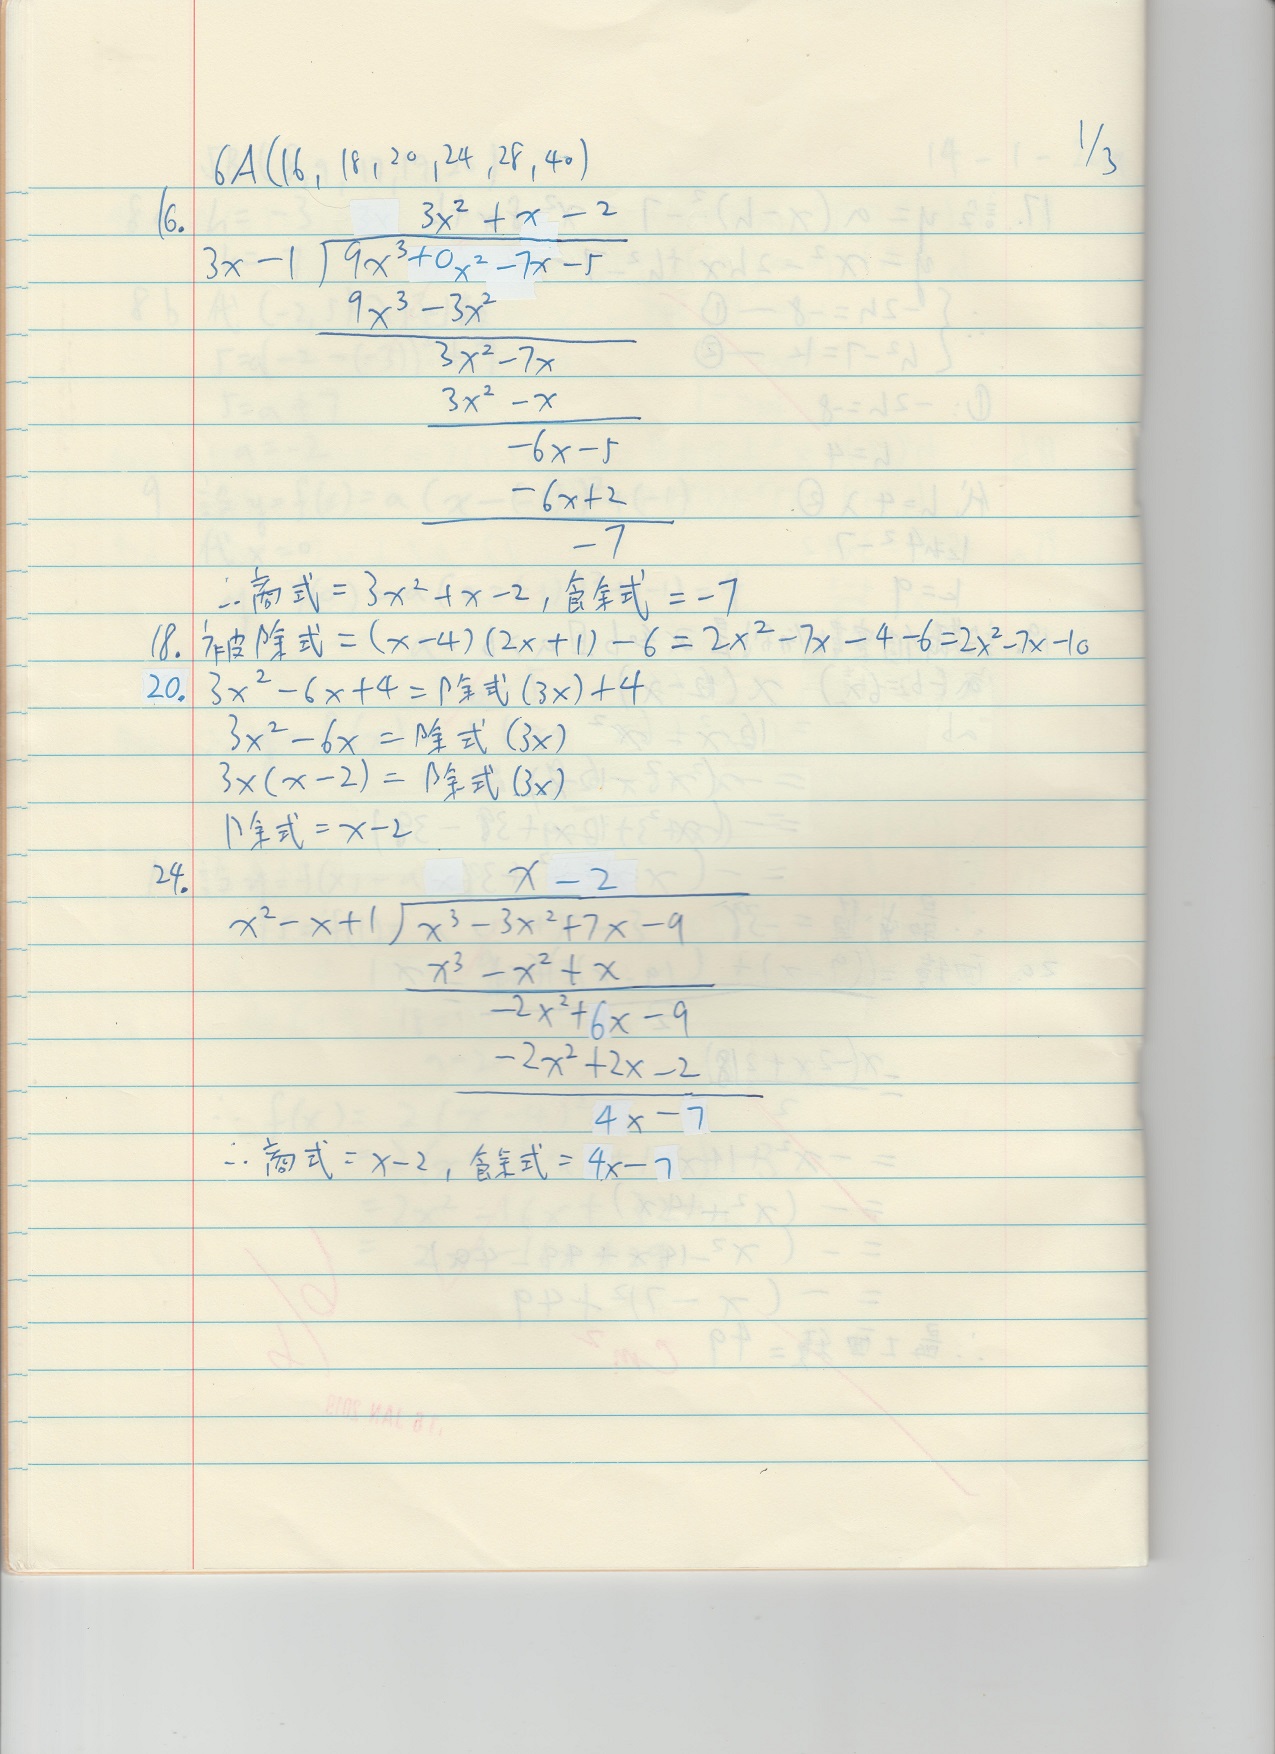 6A(16, 18, 20, 24, 28, 40)
1/3
16.
3x² + x - 2
3x - 1 9x³ + 0x² - 7x - 5
9x³ - 3x²
3x² - 7x
3x² - x
-6x - 5
-6x + 2
-7
∴商式 = 3x² + x - 2, 餘式 = -7
18. 被除式 = (x-4)(2x+1) - 6 = 2x² - 7x - 4 - 6 = 2x² - 7x - 10
20. 3x² - 6x + 4 = 除式(3x) + 4
3x² - 6x = 除式(3x)
3x(x-2) = 除式(3x)
除式 = x - 2
24.
x - 2
x² - x + 1 x³ - 3x² + 7x - 9
x³ - x² + x
-2x² + 6x - 9
-2x² + 2x - 2
4x - 7
∴商式 = x - 2, 餘式 = 4x - 7